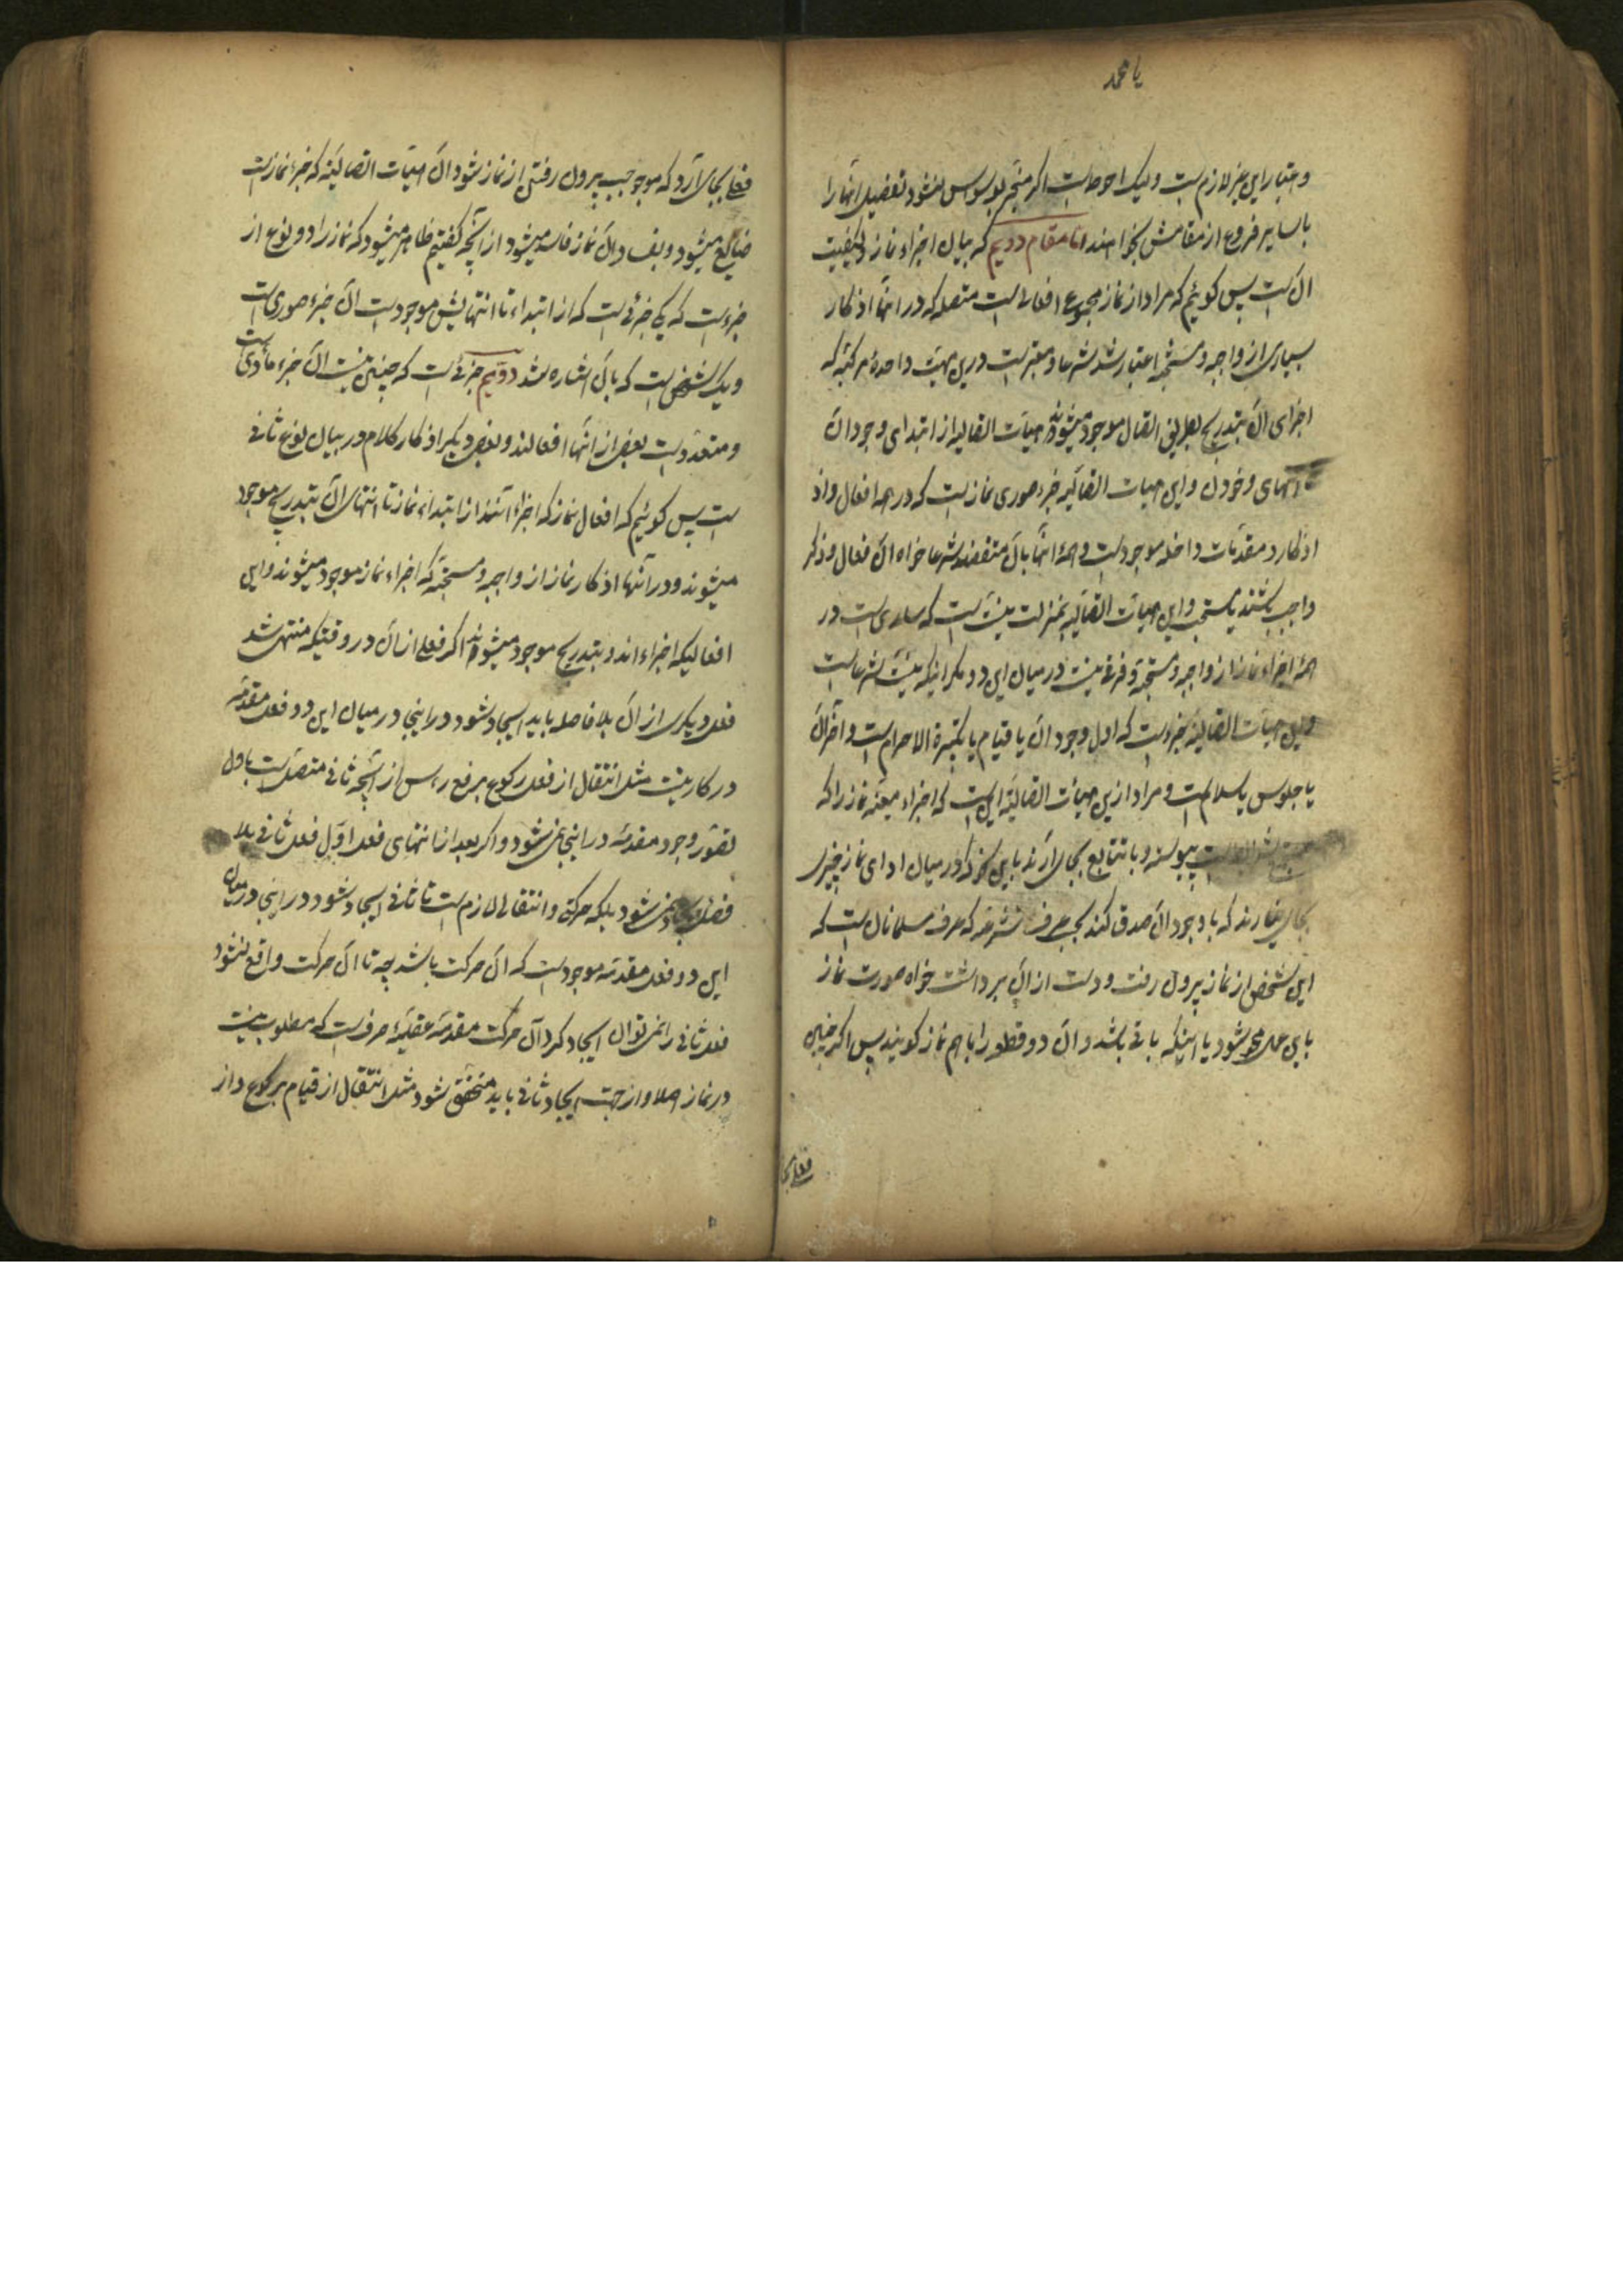 یا محمد
و اعتبار این غیر لازم است ولیک احوط است اگر منجر بوسواس نشود تفصیل اینها را
با سایر فروع از مقامش بخواهند اما مقام دویم که بیان اجزاء نماز و کیفیت
آن است پس گوئیم که مراد از نماز مجموع افعالی است متصله که در اینها اذکار
بسیاری از واجبه و مستحبه اعتبار شد شرعا و معتبر است در این هیئت واحده مرکبه که
اجزای آن بتدریج بطریق اتصال موجود میشوند هیأت اتصالیه از ابتدای وجود آن
انتهای وجود آن و این هیات اتصالیه جزء صوری نماز است که در همه افعال و اذ
اذکار و مقدمات داخله موجود است و همه اینها بآن متصفند شرعا خواه آن فعال و ذکر
واجب باشند یا مستحب و این هیأت اتصالیه بمنزلت نیت است که ساری است در
همه اجزاء نماز از واجبه و مستحبه و فرقی نیست در میان این دو مگر اینکه نیت شرعا است
و این هیأت اتصالیه جزء است که اول وجود آن یا قیام یا تکبیرة الاحرام است و آخر آن
یا جلوس یا سلام است و مراد ازین هیأت اتصالیه این است که اجزاء معینه نماز را که
پیوسته و با تتابع بجای آرند باین نحو که در میان ادای نماز چیزی
بجای نیارند که با وجود آن صدق کند بحسب عرف متشرعه که عرف مسلمانان است که
این شخص از نماز بیرون رفت و دست از آن برداشت خواه صورت نماز
باین عمل محو شود یا اینکه باقی باشد و آن دو قطور را باهم نماز گویند پس اگر چنین
فعلی بجا
فعلی بجای آرد که موجب بیرون رفتن از نماز شود آن هیئات اتصالیه که جزء نماز است
ضایع میشود و بفساد آن نماز فاسد میشود از آنچه گفتیم ظاهر میشود که نماز را دو نوع از
جزء است که یکی جزئی است که از ابتداء تا انتهایش موجود است آن جزء صوری است
و یک شخص است که بآن اشاره شد دویم جزئی است که چنین نیست آن جزء مادی است
و متعدد است بعضی از آنها افعالند و بعضی دیگر اذکار کلام در بیان نوع ثانی
است پس گوئیم که افعال نماز که اجزاء آنند از ابتداء نماز تا انتهای آن بتدریج موجود
میشوند و در آنها اذکار نماز از واجبه و مستحبه که اجزاء نماز موجود میشوند و این
افعالیکه اجزاء اند و بتدریج موجود میشوند اگر فعلی از آن در وقتیکه منتهی شد
فعل دیگری از آن بلا فاصله باید ایجاد شود در اینجا در میان این دو فعل مقدمه
در کار نیست مثل انتقال از فعل رکوع برفع رأس از آنچه ثانی متصل است باول
تصور وجود مقدمه در اینجا نمی شود و اگر بعد از انتهای فعل اول فعل ثانی بلا
فصل ایجاد نمی شود بلکه حرکتی و انتقالی لازم است تا ثانی ایجاد شود در اینجا در میان
این دو فعل مقدمه موجود است که آن حرکت باشد بچه تا آن حرکت واقع نشود
فعل ثانی را نمی توان ایجاد کرد آن حرکت مقدمه عقلیه صرف است که مطلوب نیست
در نماز اصلا و از جهت ایجاد ثانی باید متحقق شود مثل انتقال از قیام برکوع و از